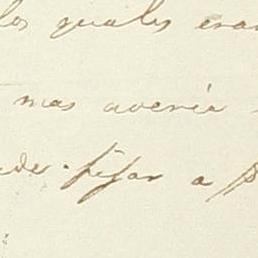 los quales eran
mas averia
fijar a